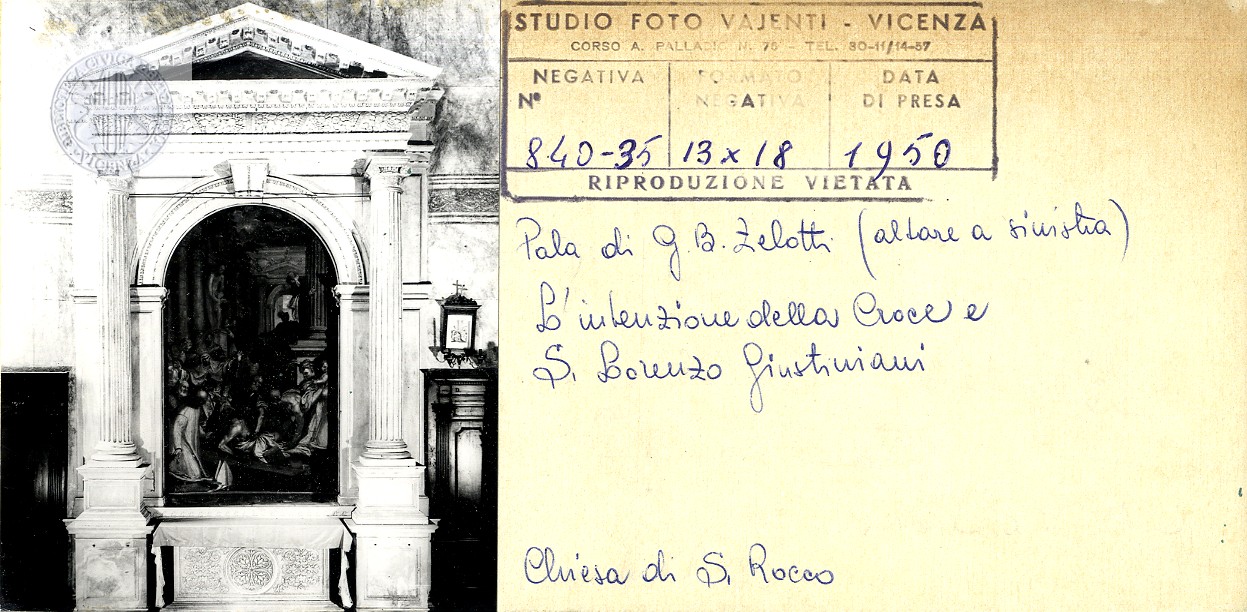 STUDIO FOTO VAJENTI - VICENZA
CORSO A. PALLADIO N. 75 - TEL. 30-11/14-57
NEGATIVA
Nº
840-35
FORMATO
NEGATIVA
13 x 18
DATA
DI PRESA
1950
RIPRODUZIONE VIETATA
Pala di G.B. Zelotti (altare a sinistra)
L'intenzione della Croce e
S. Lorenzo Giustiniani
Chiesa di S. Rocco